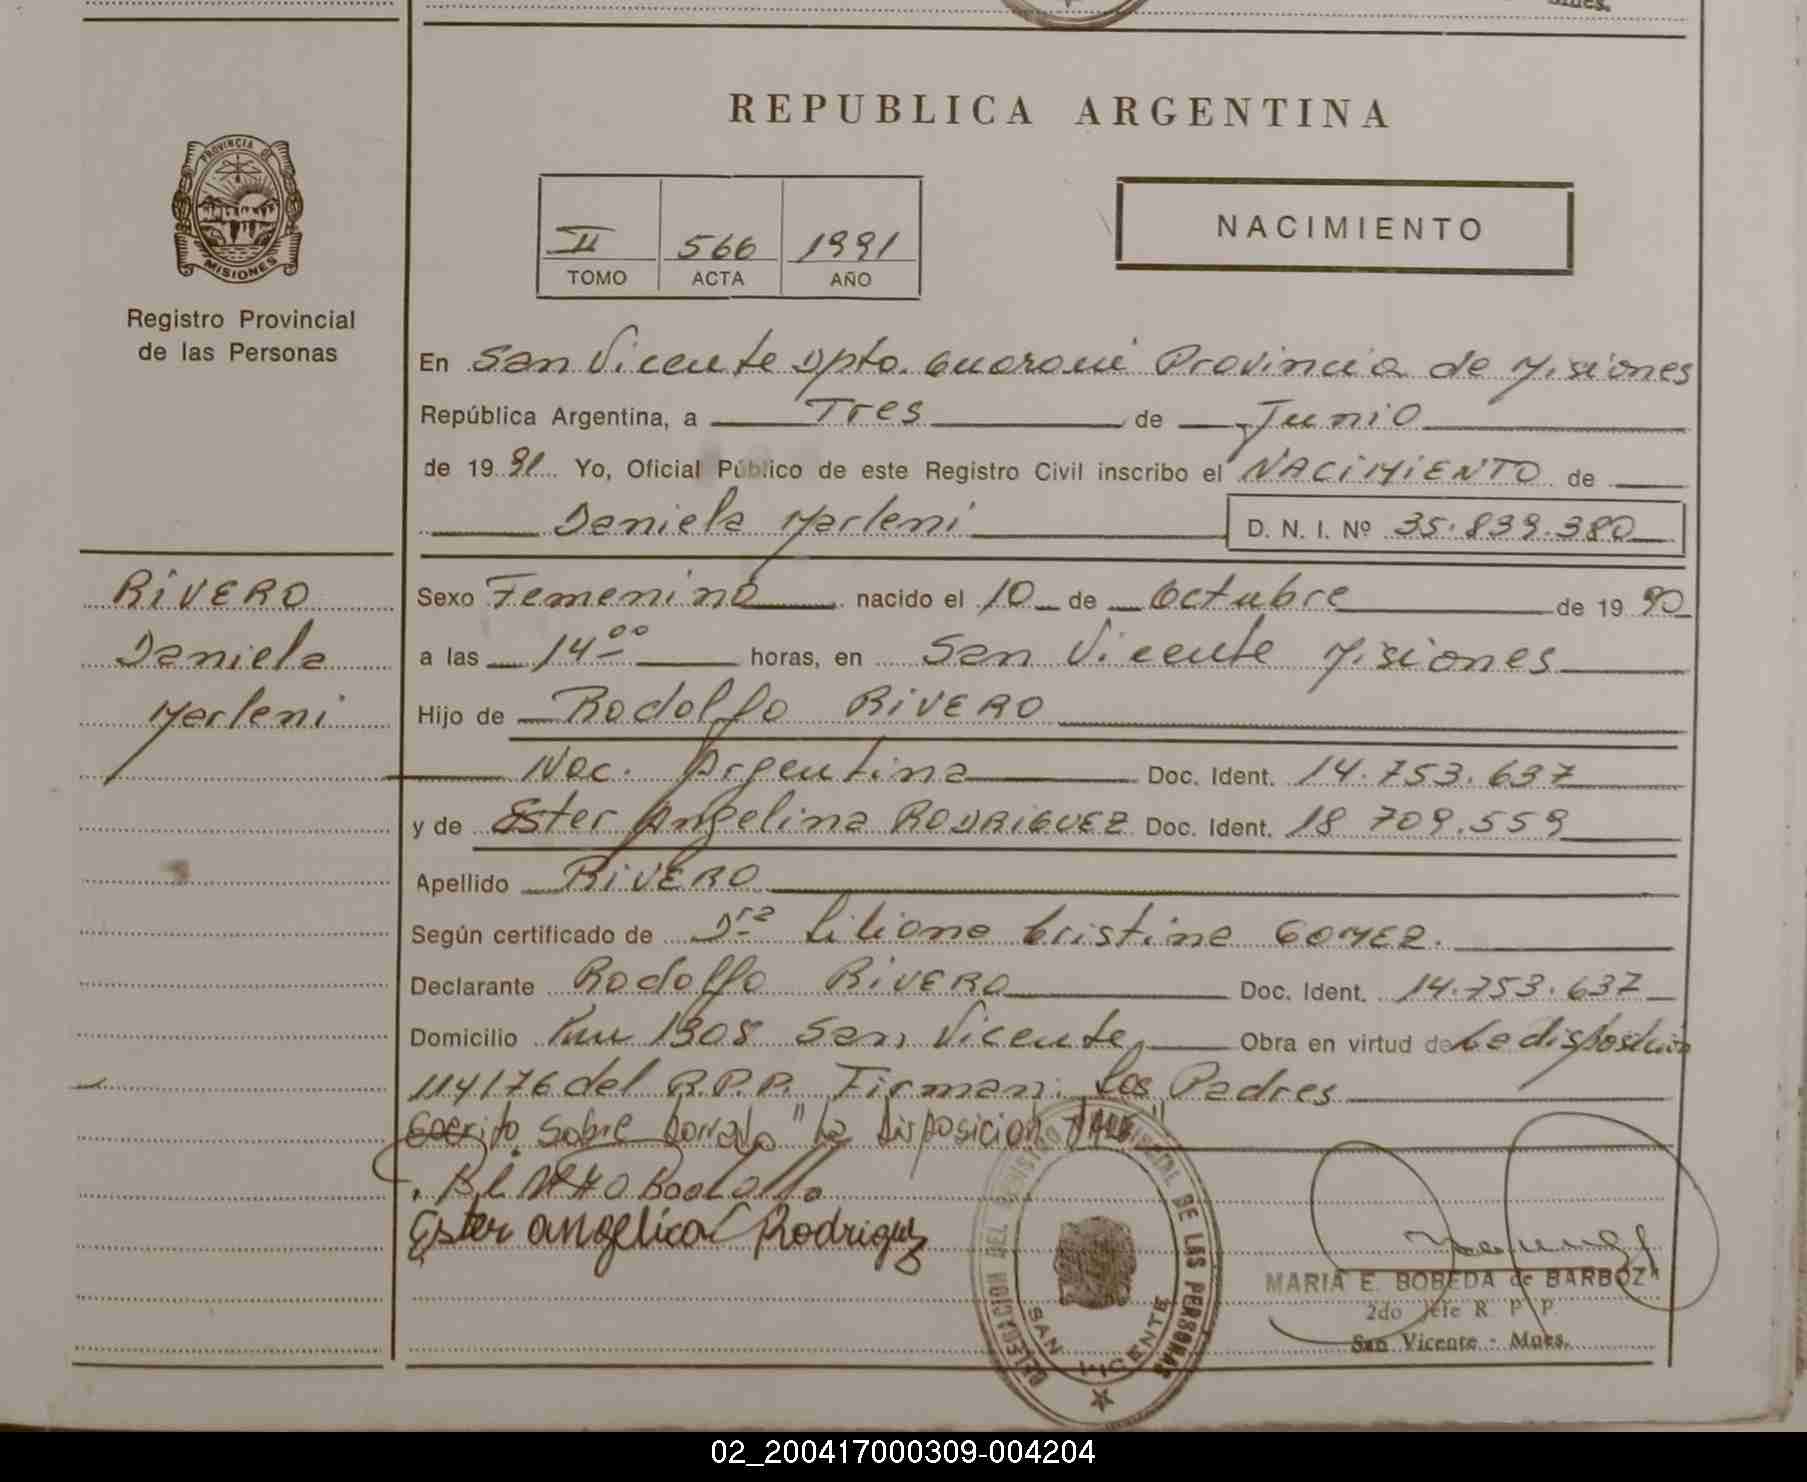 Mnes.
REPUBLICA ARGENTINA
PROVINCIA DE
MISIONES
Registro Provincial
de las Personas
II 566 1991
TOMO ACTA AÑO
NACIMIENTO
En San Vicente Dpto. Guarani Provincia de Misiones
República Argentina, a Tres de Junio
de 1991 Yo, Oficial Público de este Registro Civil inscribo el NACIMIENTO de
Daniela Marleni D. N. I. Nº 35.839.380
RIVERO
Daniela
Marleni
Sexo Femenino nacido el 10 de Octubre de 1990
a las 14 00 horas, en San Vicente Misiones
Hijo de Rodolfo RIVERO
Nac. Argentina Doc. Ident. 14.753.637
y de Ester Angelina RODRIGUEZ Doc. Ident. 18 709.559
Apellido RIVERO
Según certificado de Dra Liliana Cristina GOMEZ.
Declarante Rodolfo RIVERO Doc. Ident. 14.753.637
Domicilio Km 1308 San Vicente Obra en virtud de La disposición
114/76 del R.P.P. Firman: Los Padres
Escrito sobre borrado "La Disposicion" Vale
Ester angelica Rodriguez
DELEGACION DEL REGISTRO PROVINCIAL DE LAS PERSONAS
SAN VICENTE
MARIA E. BOBEDA de BARBOZA
2do Jefe R. P. P.
San Vicente - Mnes.
02_200417000309-004204